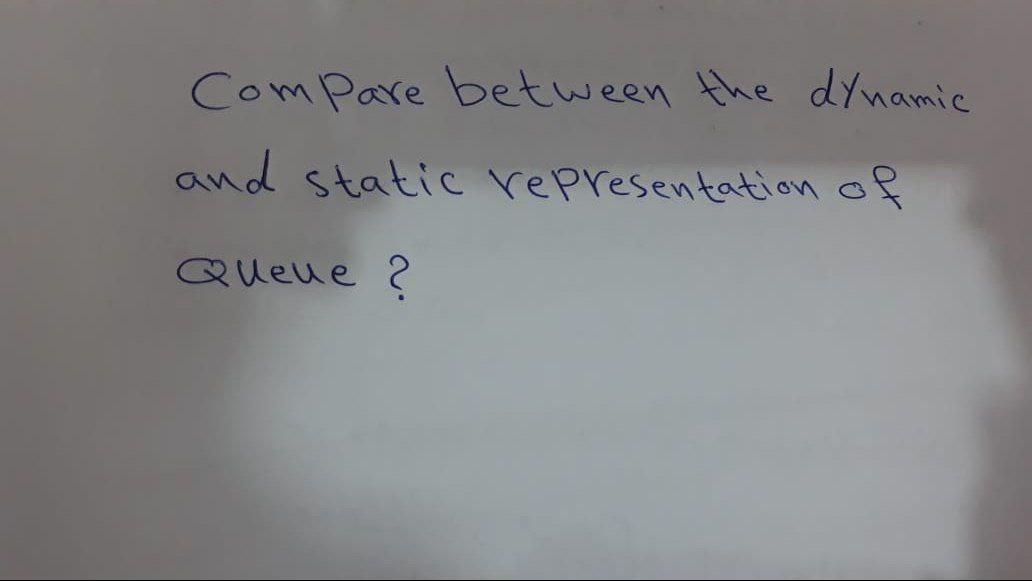 Compare between the dynamic
and static representation of
Queue ?